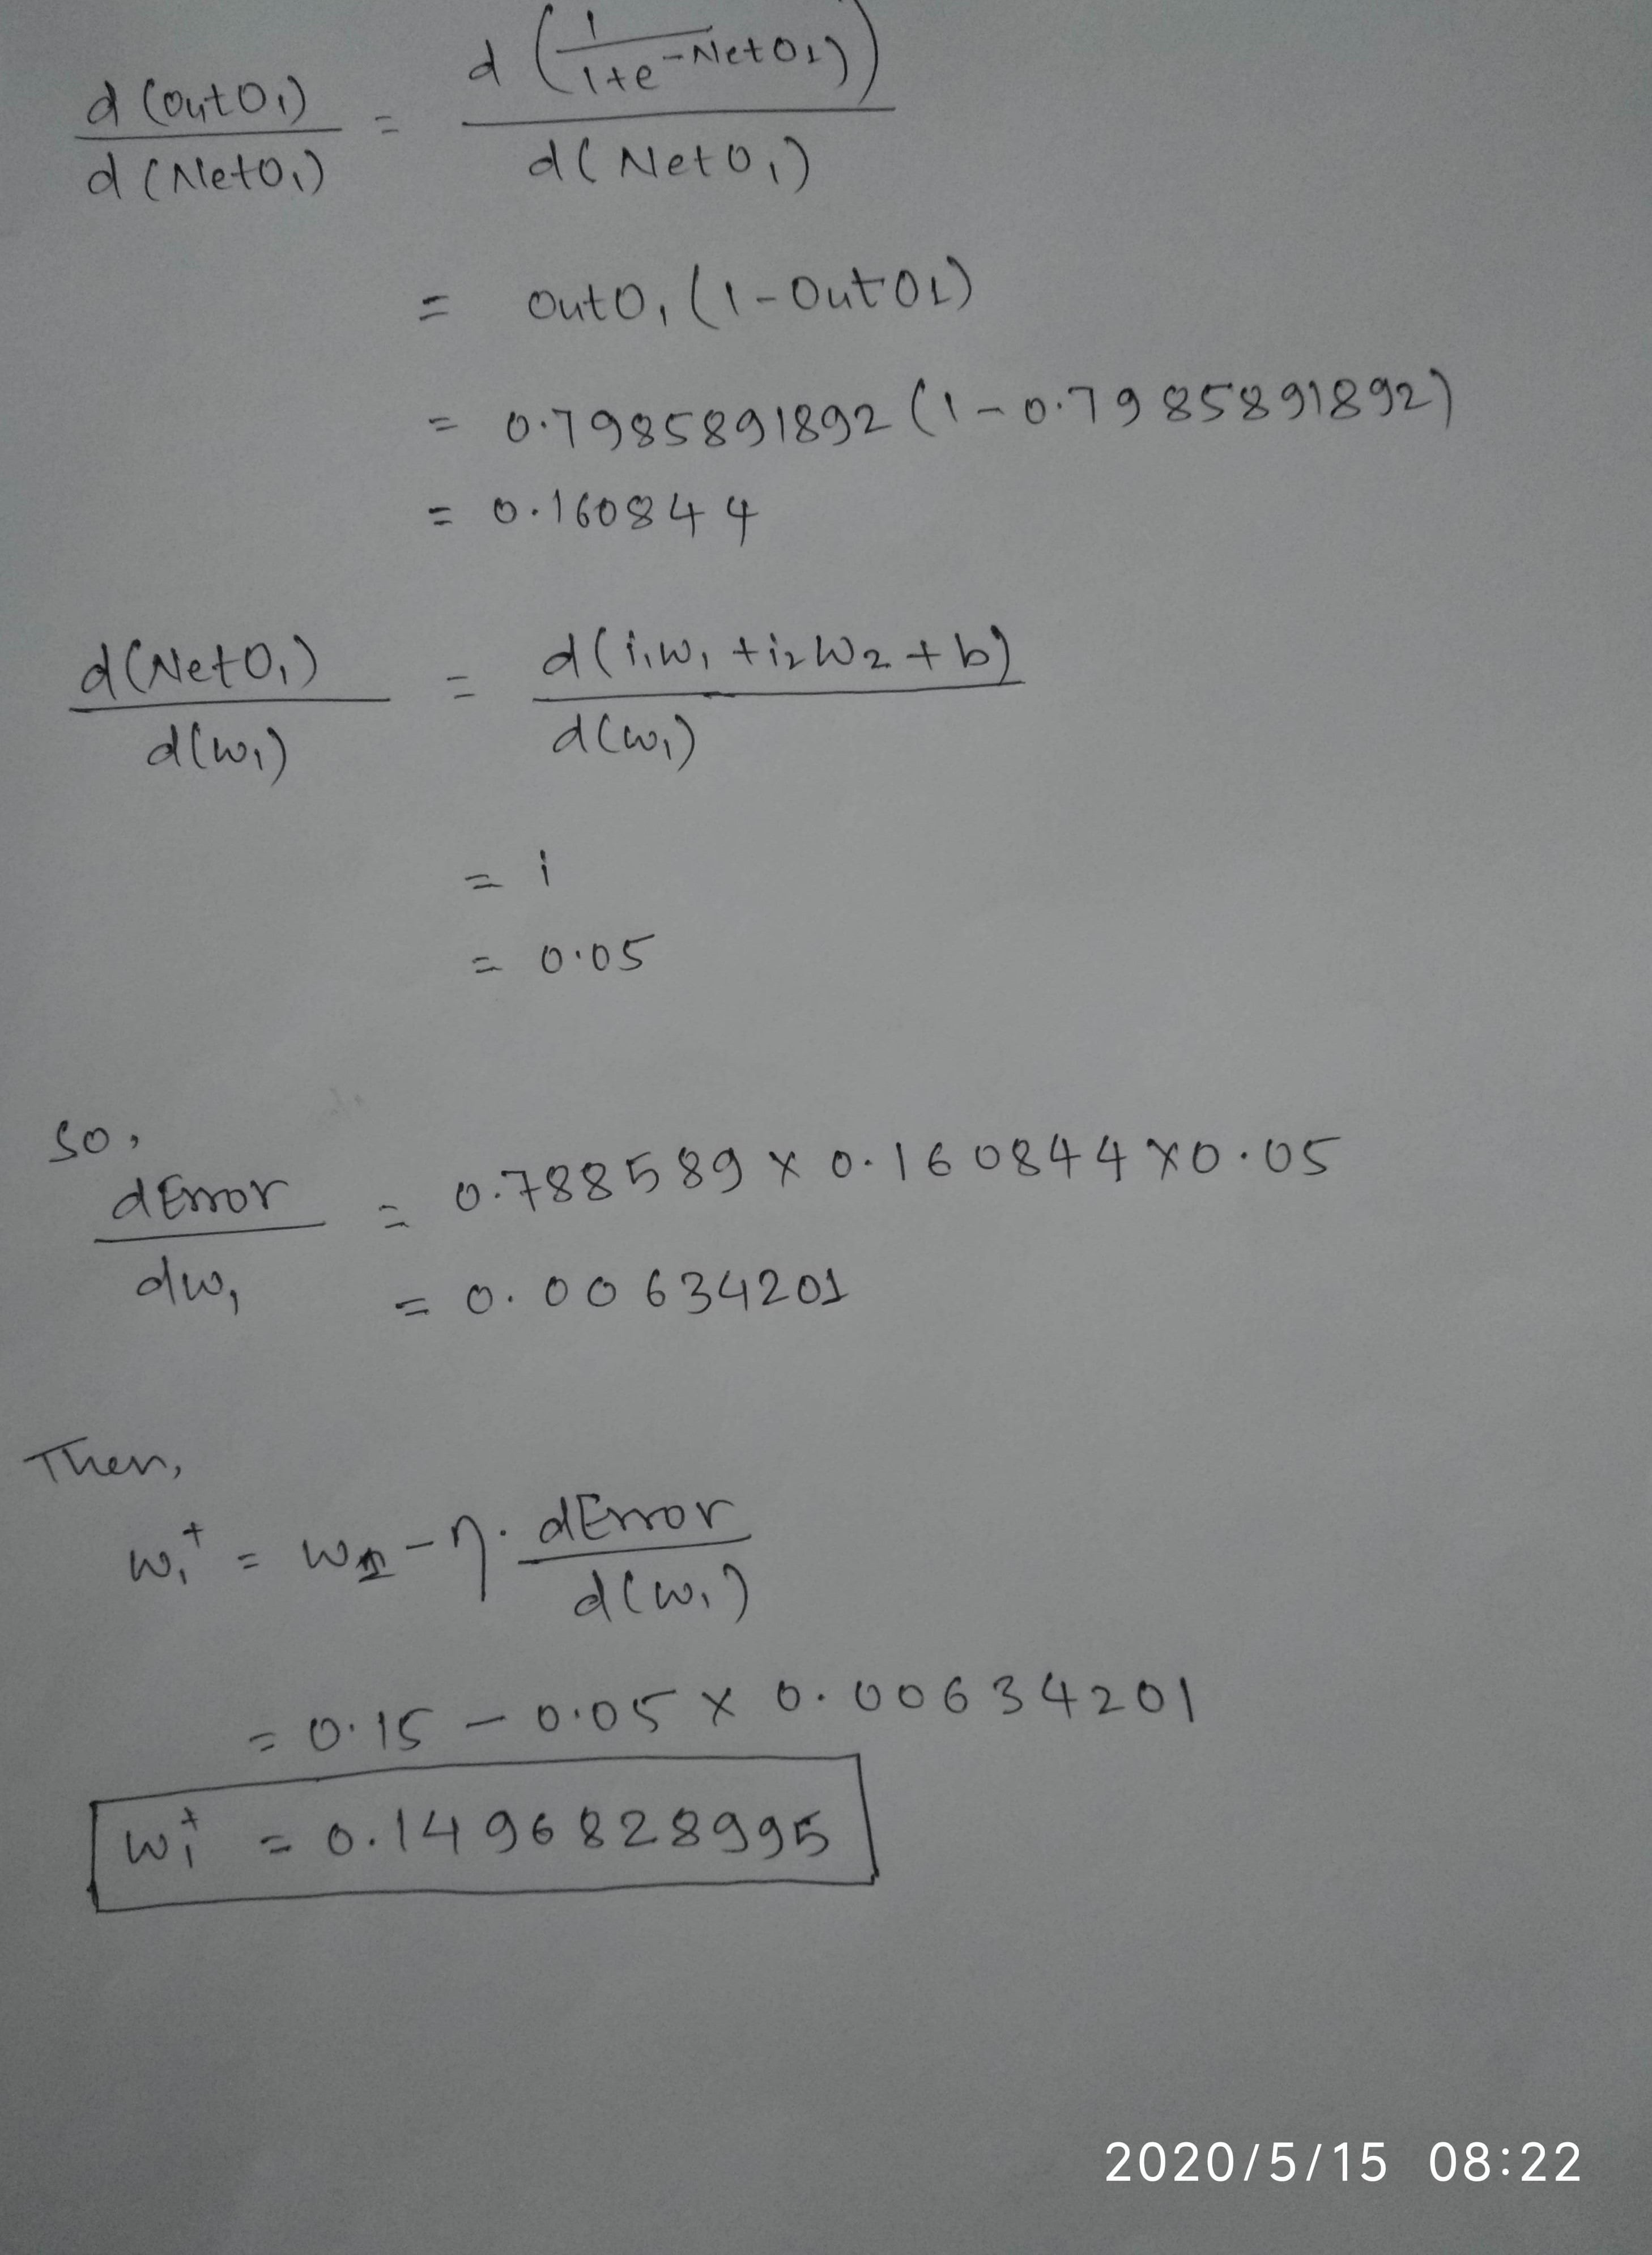 d(outO₁) / d(NetO₁) = d(1 / (1+e^-NetO1)) / d(NetO₁)
= outO₁(1-OutO1)
= 0.7985891892(1-0.7985891892)
= 0.160844
d(NetO₁) / d(w₁) = d(i₁w₁ + i₂w₂ + b) / d(w₁)
= i
= 0.05
So,
dError / dw₁ = 0.788589 × 0.160844 × 0.05
= 0.00634201
Then,
w₁⁺ = w₁ - η · dError / d(w₁)
= 0.15 - 0.05 × 0.00634201
w₁⁺ = 0.1496828995
2020/5/15 08:22